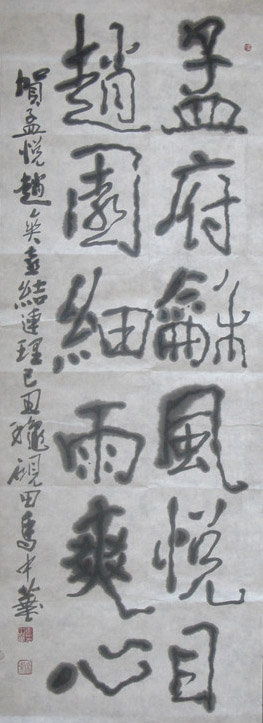 孟府龢風悦目
趙園細雨爽心
賀孟悦趙爽喜結連理己丑龝硯田馬中華